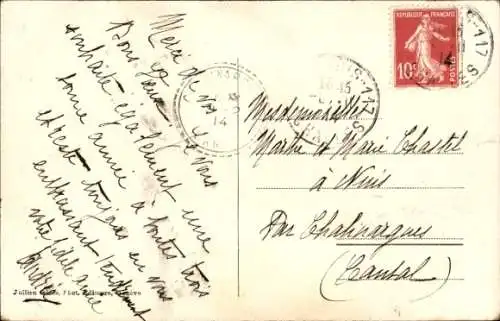 Merci de vos
Bons Vœux Je vous
souhaite également une
bonne année à toutes trois
et c'est toujours en vous
embrassant tendrement
votre fidèle amie
REPUBLIQUE FRANÇAISE
10c
POSTES
14
Mesdemoiselles
Marthe et Marie Chastel
à
Par Chalinargues
(Cantal)
Jullien